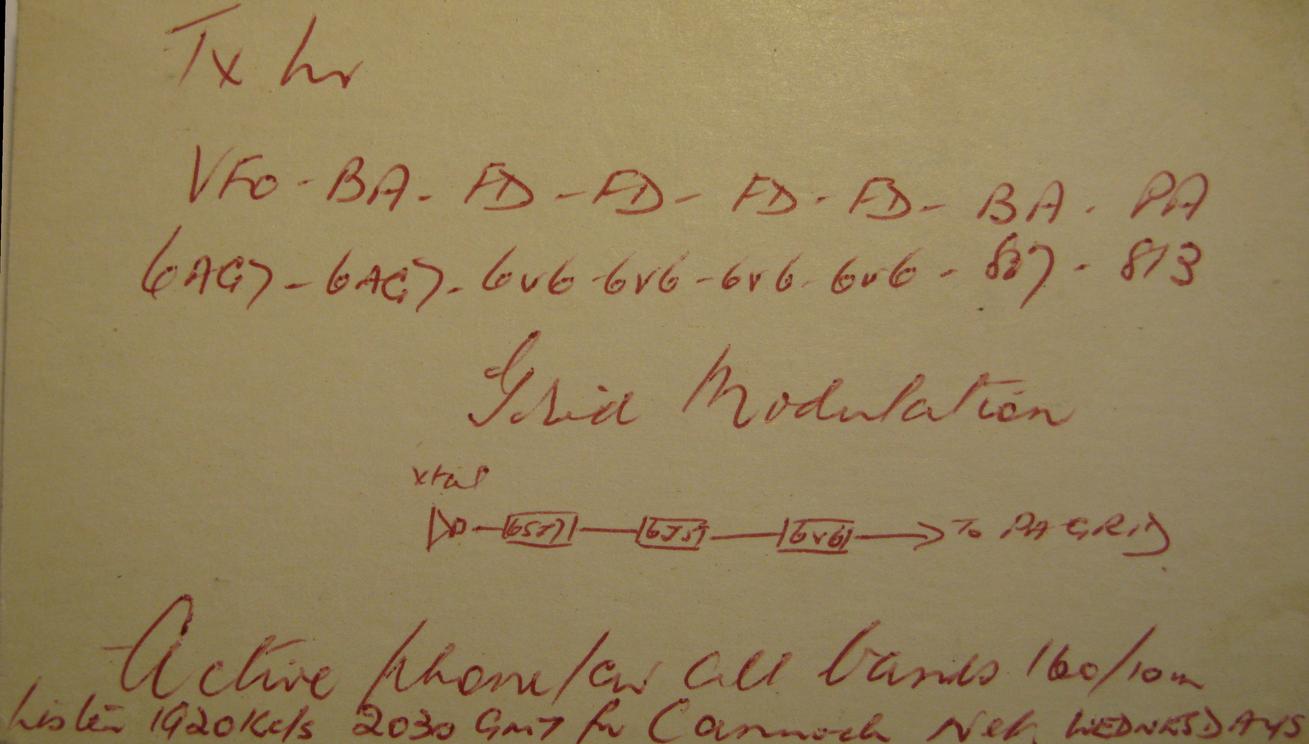 Tx hr
VFO - BA - FD - FD - FD - FD - BA - PA
6AG7 - 6AG7 - 6V6 - 6V6 - 6V6 - 6V6 - 807 - 813
Grid Modulation
xtal
6SJ7 6J5 6V6 To PA GRID
Active phone/cw all bands 160/10m
Listen 1920Kc/s 2030 GMT for Cannock Net. WEDNESDAYS